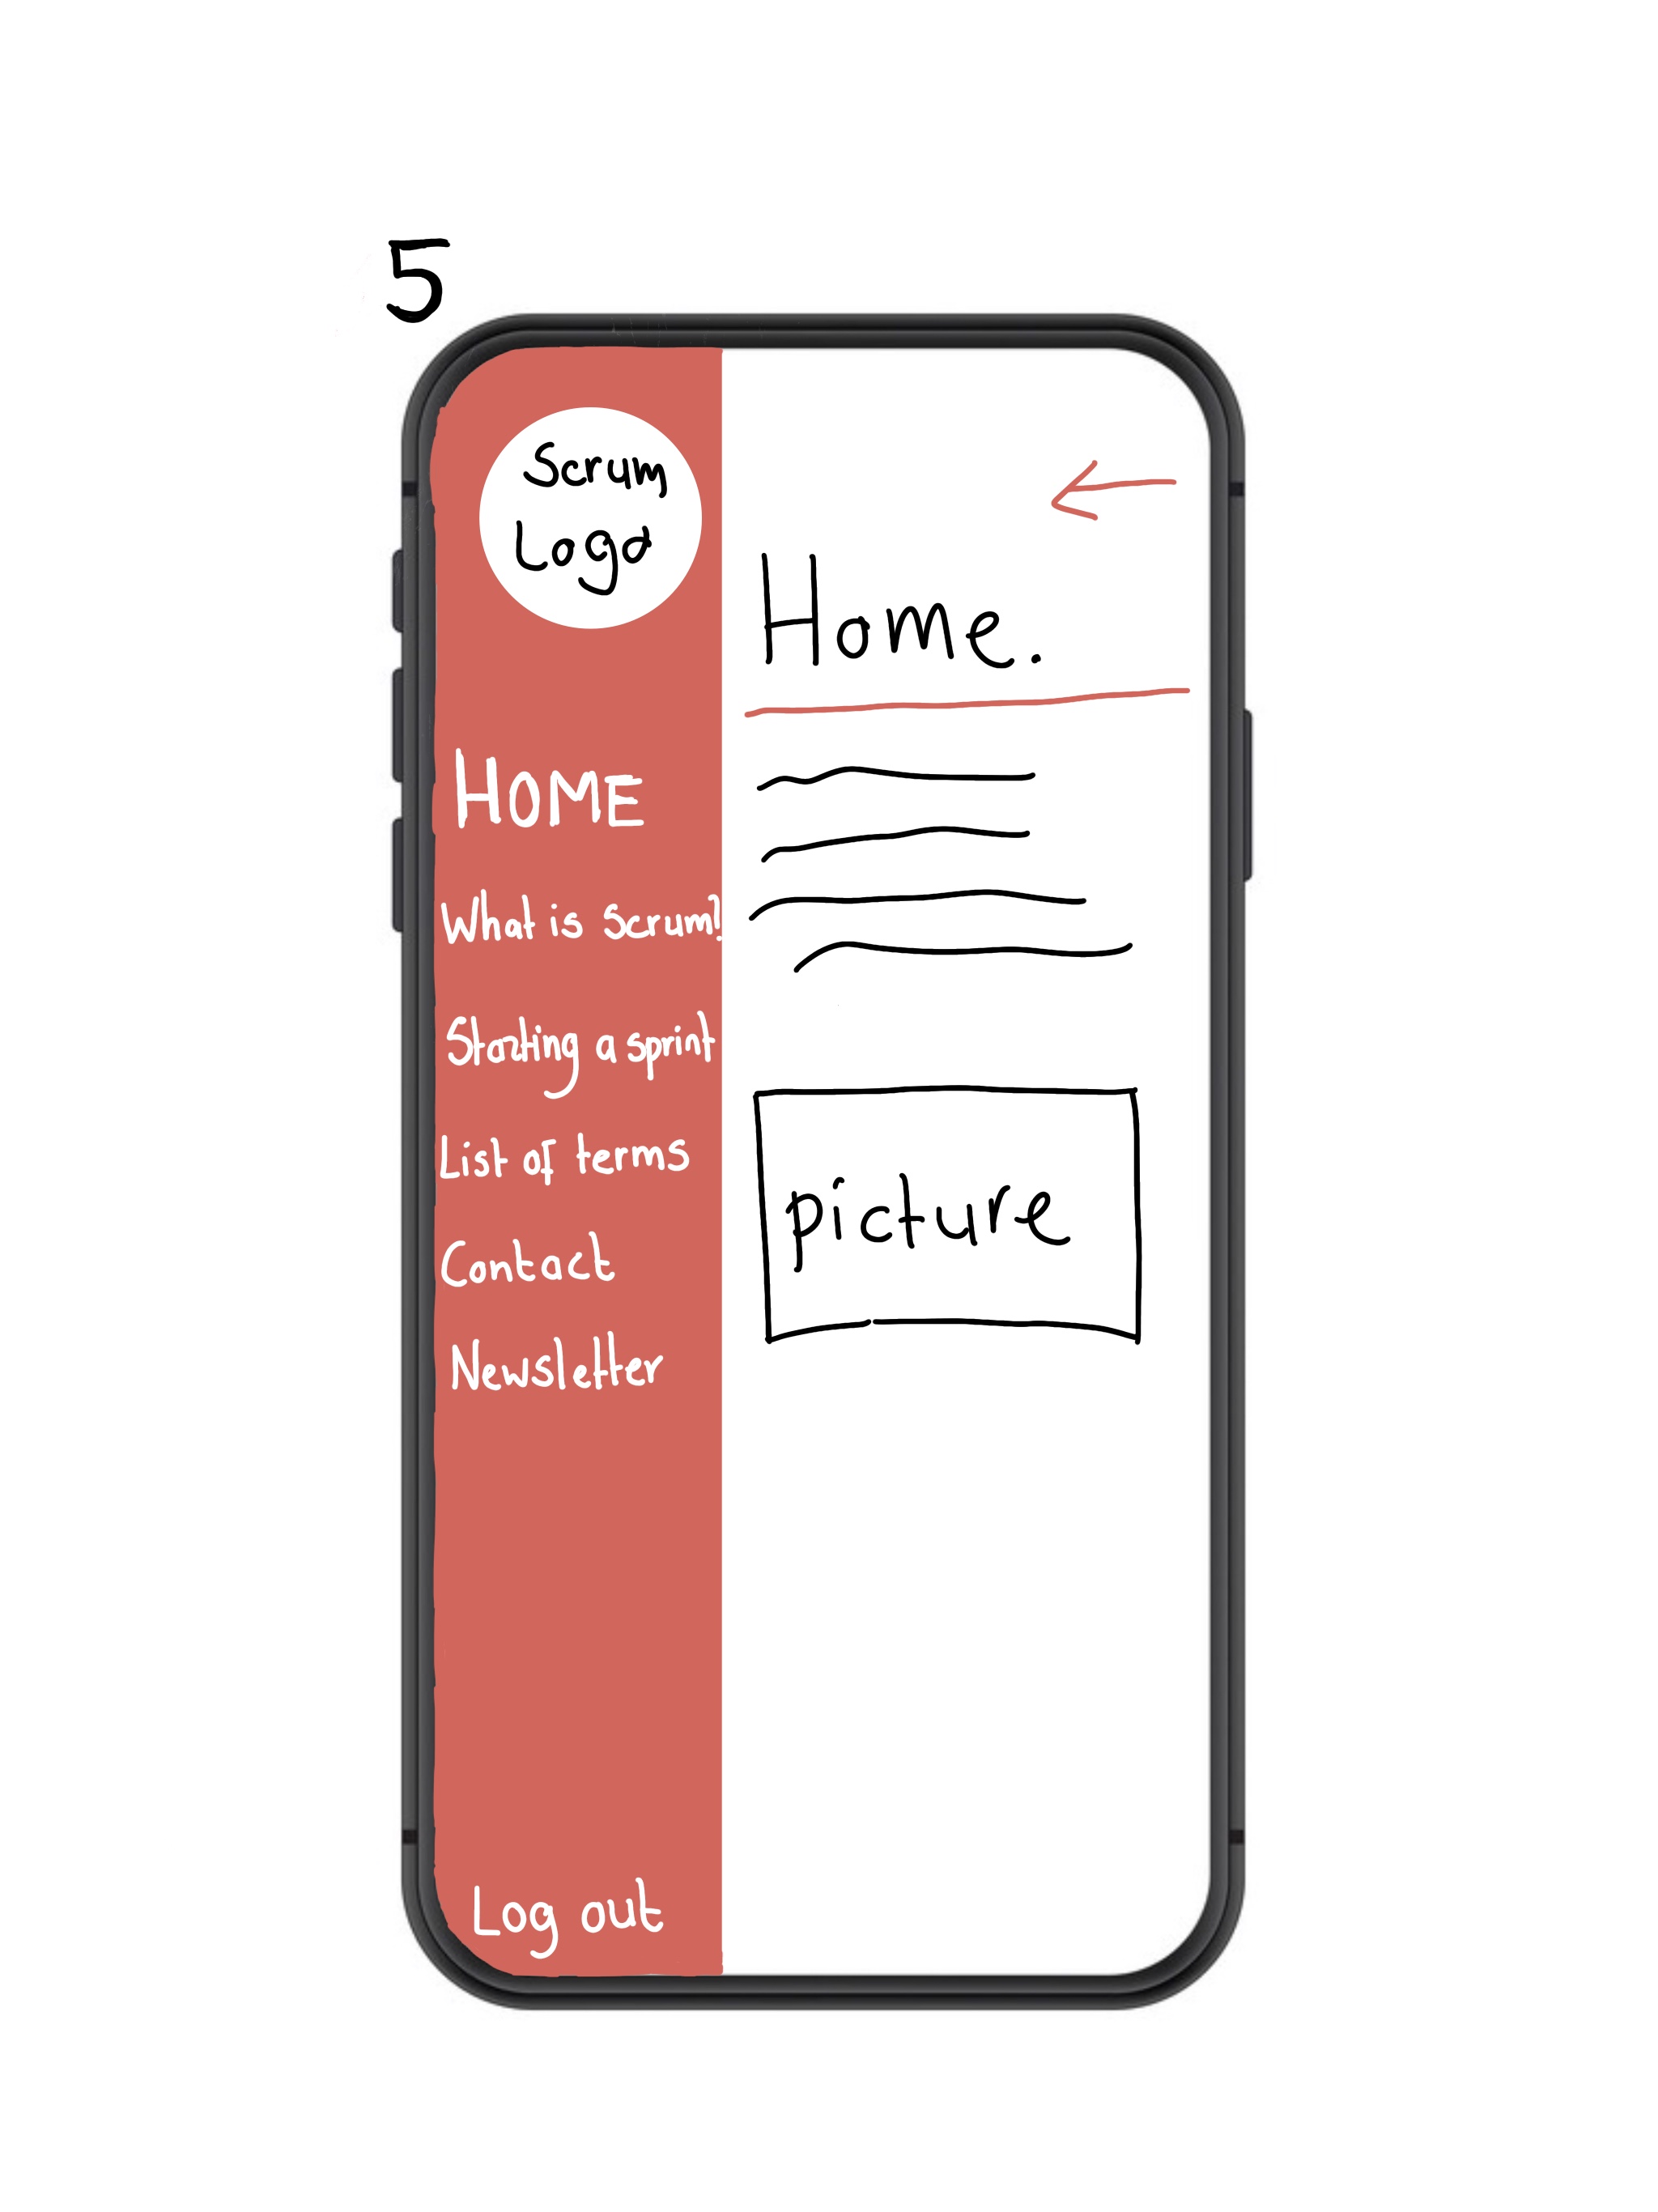 5
Scrum
Logo
HOME
What is Scrum?
Starting a sprint
List of terms
Contact
Newsletter
Log out
Home.
picture